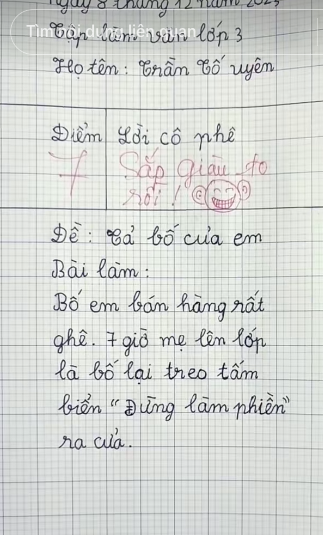 Ngày 8 tháng 12 năm 2023
Tập làm văn lớp 3
Tìm nội dung liên quan
Họ tên: Trần Tố Uyên
Điểm
Lời cô phê
7
Sắp giàu to
rồi!
Đề: Tả bố của em
Bài làm:
Bố em bán hàng rất
ghê. 7 giờ mẹ lên lớp
là bố lại treo tấm
biển "Đừng làm phiền"
ra cửa.